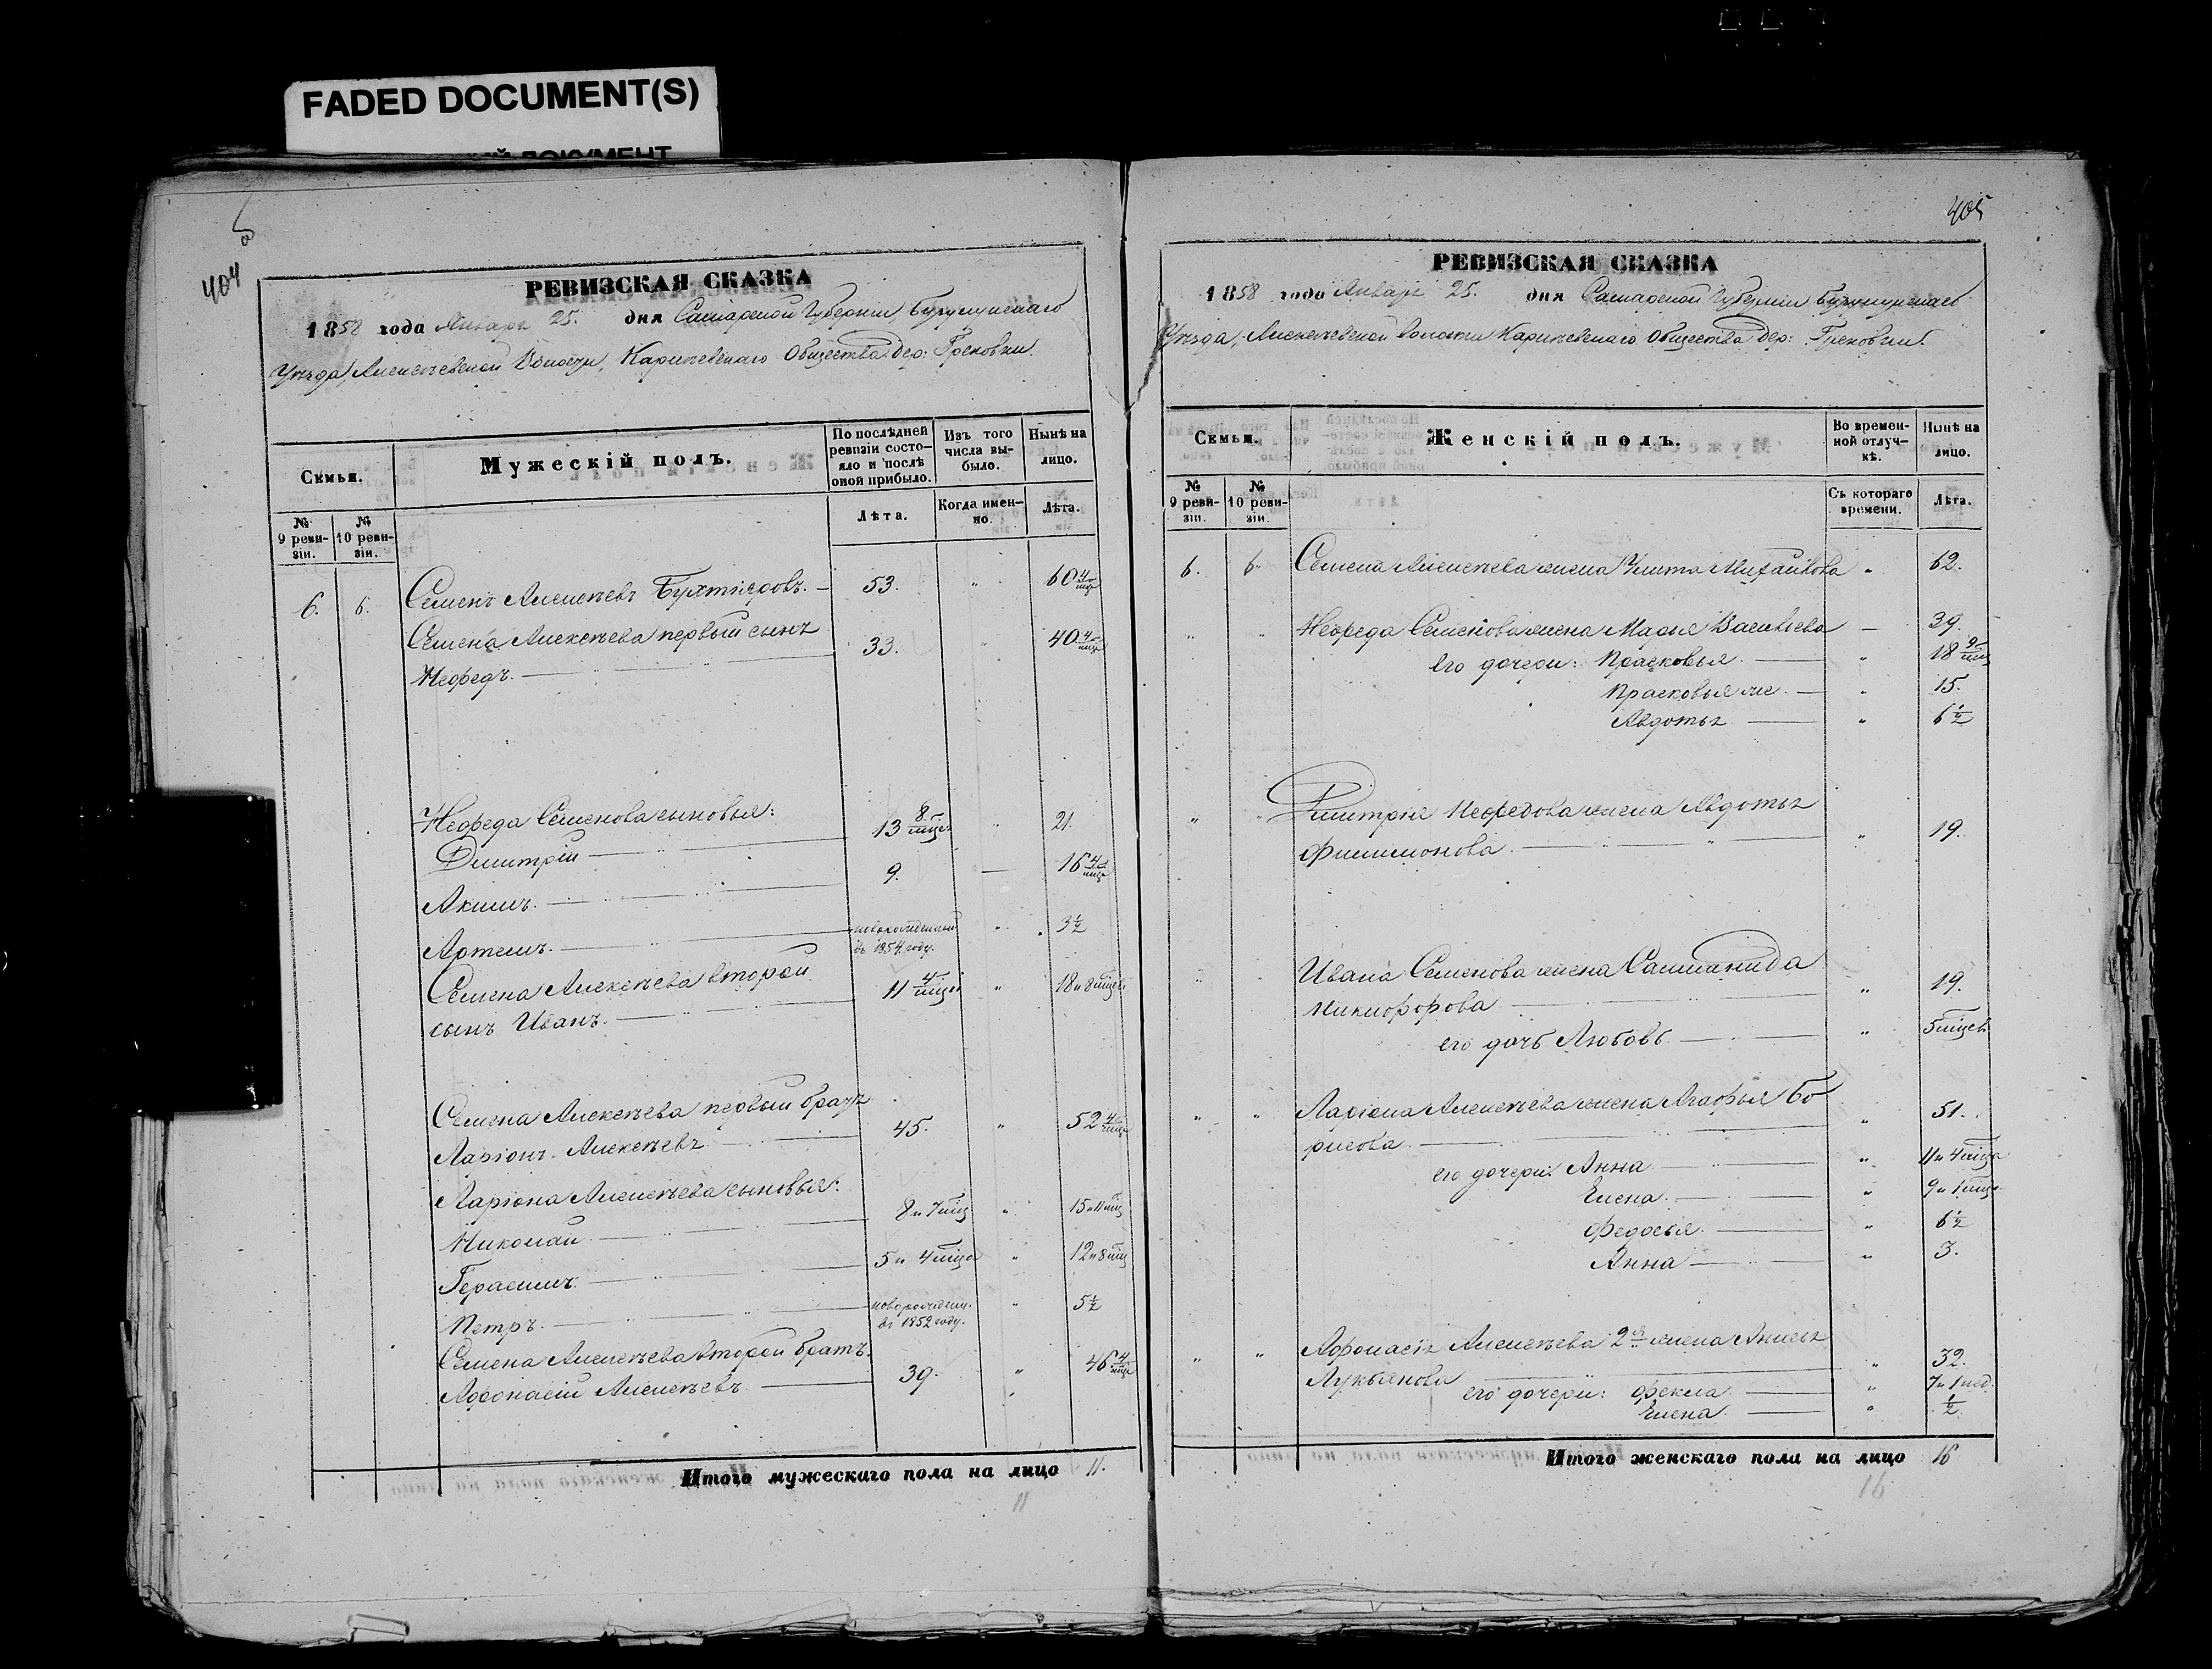 FADED DOCUMENT(S)
404
РЕВИЗСКАЯ СКАЗКА
1858 года Января 25. дня Самарской Губерніи, Бугурусланскаго
Уѣзда, Алексѣевской Волости, Общества дер: Грековки.
Семьи.
Мужескій полъ.
По послѣдней ревизіи состо-яло и послѣ оной прибыло.
Изъ того числа вы-было.
Нынѣ на лицо.
№ 9 реви-зіи.
№ 10 реви-зіи.
Лѣта.
Когда имен-но.
Лѣта.
6. 6. Семенъ Алексѣевъ Бухтіяровъ. — 53. " 60 4/мца
Семена Алексѣева первый сынъ
Нефедъ. — 33. " 40 4/мца
Нефеда Семенова сыновья:
Димитрій — 13 8/мцев " 21.
Акимъ. — 9. — 16 4/мца
Артемъ. — новорожденный въ 1854 году. " 3 1/2
Семена Алексѣева второй
сынъ Иванъ. — 11 4/мцa " 18 и 8 мцев
Семена Алексѣева первый братъ
Ларіонъ Алексѣевъ — 45. " 52 4/мца
Ларіона Алексѣева сыновья:
Николай — 8 и 7 мц " 15 и 11 мц
Герасимъ. — 5 и 4 мца " 12 и 8 мц
Петръ. — новорожден. въ 1852 году. " 5 1/2
Семена Алексѣева второй братъ
Афонасій Алексѣевъ — 39. " 46 4/мца
Итого мужескаго пола на лицо 11.
11
405
РЕВИЗСКАЯ СКАЗКА
1858 года Января 25. дня Самарской Губерніи Бугурусланскаго
Уѣзда, Алексѣевской Волости Общества дер: Грековки.
Семьи.
Женскій полъ.
Во времен-ной отлуч-кѣ.
Нынѣ на лицо.
№ 9 реви-зіи.
№ 10 реви-зіи.
Съ котораго времени.
Лѣта.
6. 6. Семена Алексѣева жена Михайлова " 62.
" " Нефеда Семенова жена Марья Васильева — 39.
Его дочери: Прасковья. — " 18 9/мц
Прасковья же. — " 15.
Авдотья — " 6 1/2
" " Димитрія Нефедова жена Авдотья
Филимонова. — " 19.
" " Ивана Семенова жена Саломанида
Никифорова — " 19.
его дочь Любовь. — " 5 мцев
" " Ларіона Алексѣева жена Агафья Бо
рисова. — " 51.
его дочери: Анна — " 11 и 4 мца
Елена. — " 9 и 1 мца
Федосья. — " 6 1/2
Анна — " 3.
" " Афонасія Алексѣева 2я жена Анисья
Лукьянова — " 32.
его дочери: Фекла — " 7 и 1 нед.
Елена. — " 1/2
Итого женскаго пола на лицо 16
16